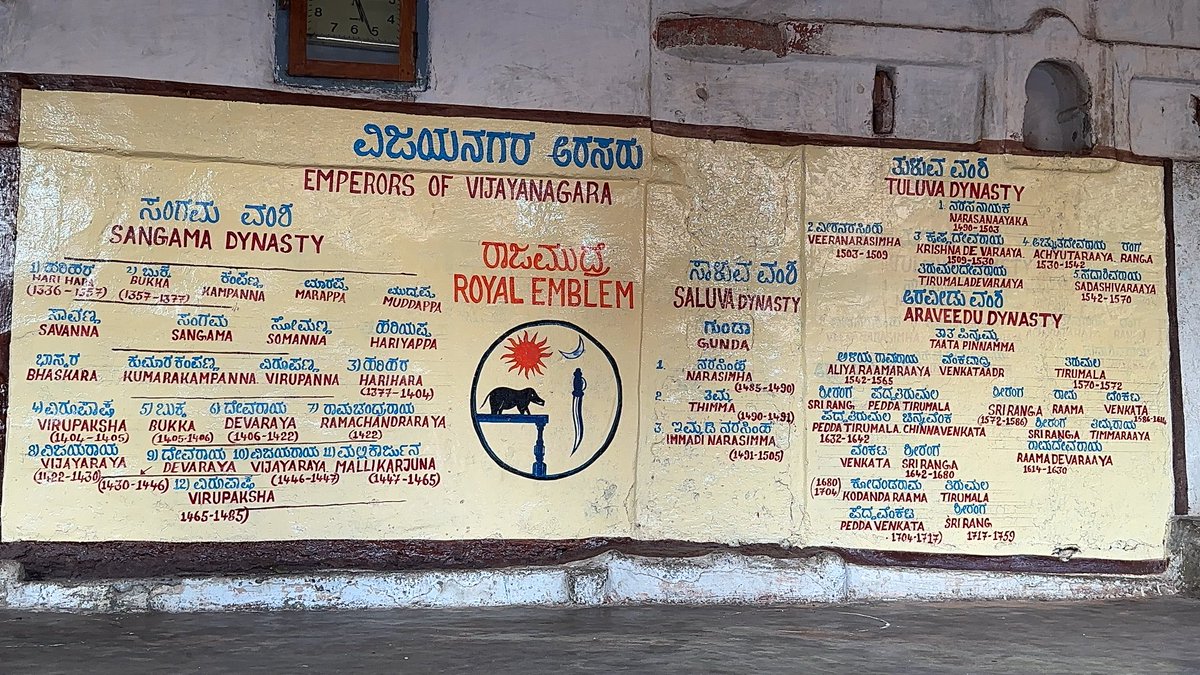 8 7 6 5 4
ವಿಜಯನಗರ ಅರಸರು
EMPERORS OF VIJAYANAGARA
ಸಂಗಮ ವಂಶ
SANGAMA DYNASTY
೧) ಹರಿಹರ ೨) ಬುಕ್ಕ ಕಂಪಣ್ಣ ಮಾರಪ್ಪ ಮುದ್ದಪ್ಪ
HARI HARA BUKKA KAMPANNA MARAPPA MUDDAPPA
(1336-1357) (1357-1377)
ಸಾವಣ್ಣ ಸಂಗಮ ಸೋಮಣ್ಣ ಹರಿಯಪ್ಪ
SAVANNA SANGAMA SOMANNA HARIYAPPA
ಭಾಸ್ಕರ ಕುಮಾರಕಂಪಣ್ಣ ವಿರುಪಣ್ಣ ೩) ಹರಿಹರ
BHASKARA KUMARAKAMPANNA VIRUPANNA HARIHARA
(1377-1404)
೪) ವಿರುಪಾಕ್ಷ ೫) ಬುಕ್ಕ ೬) ದೇವರಾಯ ೭) ರಾಮಚಂದ್ರರಾಯ
VIRUPAKSHA BUKKA DEVARAYA RAMACHANDRARAYA
(1404-1405) (1405-1406) (1406-1422) (1422)
೮) ವಿಜಯರಾಯ ೯) ದೇವರಾಯ ೧೦) ವಿಜಯರಾಯ ೧೧) ಮಲ್ಲಿಕಾರ್ಜುನ
VIJAYARAYA DEVARAYA VIJAYARAYA MALLIKARJUNA
(1422-1430) (1430-1446) (1446-1447) (1447-1465)
೧೨) ವಿರುಪಾಕ್ಷ
VIRUPAKSHA
1465-1485)
ರಾಜಮುದ್ರೆ
ROYAL EMBLEM
ಸಾಳುವ ವಂಶ
SALUVA DYNASTY
ಗುಂಡಾ
GUNDA
1. ನರಸಿಂಹ
NARASIMHA
(1485-1490)
2. ತಿಮ್ಮ
THIMMA
(1490-1491)
3. ಇಮ್ಮಡಿ ನರಸಿಂಹ
IMMADI NARASIMMA
(1491-1505)
ತುಳುವ ವಂಶ
TULUVA DYNASTY
1. ನರಸನಾಯಕ
NARASANAAYAKA
1490-1503
2. ವೀರನರಸಿಂಹ 3. ಕೃಷ್ಣದೇವರಾಯ 4. ಅಚ್ಯುತದೇವರಾಯ ರಂಗ
VEERANARASIMHA KRISHNA DEVARAAYA ACHYUTARAAYA RANGA
1503-1509 1509-1530 1530-1542
ತಿರುಮಲದೇವರಾಯ 5. ಸದಾಶಿವರಾಯ
TIRUMALADEVARAAYA SADASHIVARAAYA
1542-1570
ಅರವೀಡು ವಂಶ
ARAVEEDU DYNASTY
ತಾತ ಪಿನ್ನಮ್ಮ
TAATA PINNAMMA
ಅಳಿಯ ರಾಮರಾಯ ವೆಂಕಟಾದ್ರಿ ತಿರುಮಲ
ALIYA RAAMARAAYA VENKATAADR TIRUMALA
1542-1565 1570-1572
ಶ್ರೀರಂಗ ಪೆದ್ದತಿರುಮಲ ಶ್ರೀರಂಗ ರಾಮ ವೆಂಕಟ
SRI RANG PEDDA TIRUMALA SRI RANGA RAAMA VENKATA
(1572-1586) 1586-1614
ಪೆದ್ದತಿರುಮಲ ಚಿನ್ನವೆಂಕಟ ಶ್ರೀರಂಗ ತಿಮ್ಮರಾಯ
PEDDA TIRUMALA CHINNAVENKATA SRI RANGA TIMMARAAYA
1632-1642
ರಾಮದೇವರಾಯ
RAAMADEVARAAYA
1614-1630
ವೆಂಕಟ ಶ್ರೀರಂಗ
VENKATA SRI RANGA
1642-1680
ಕೋದಂಡರಾಮ ತಿರುಮಲ
(1680) 1704) KODANDA RAAMA TIRUMALA
ಪೆದ್ದವೆಂಕಟ ಶ್ರೀರಂಗ
PEDDA VENKATA SRI RANG
1704-1717) 1717-1759